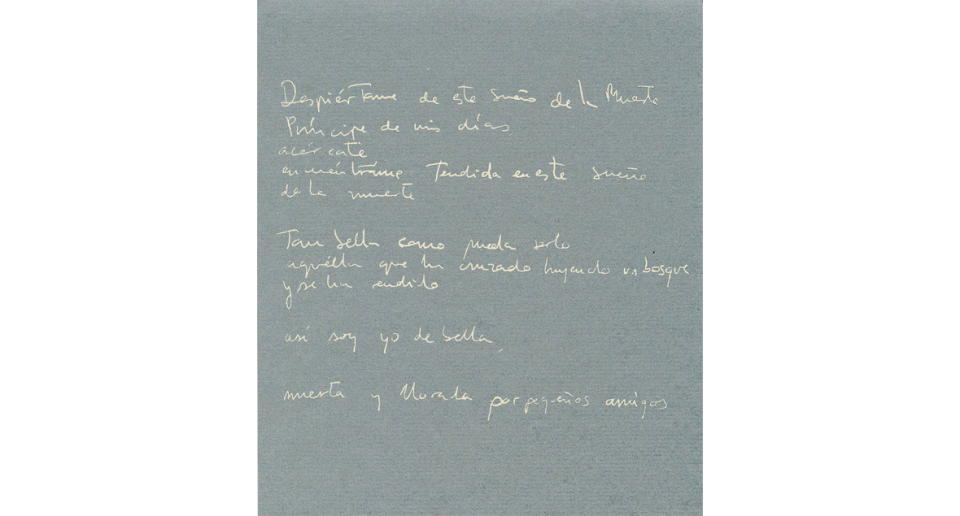 Despiértame de este sueño de la Muerte
Príncipe de mis días
acércate
encuéntrame Tendida en este sueño
de la muerte
Tan bella como pueda serlo
aquélla que ha cruzado huyendo un bosque
y se ha rendido
así soy yo de bella,
muerta y llorada por pequeños amigos